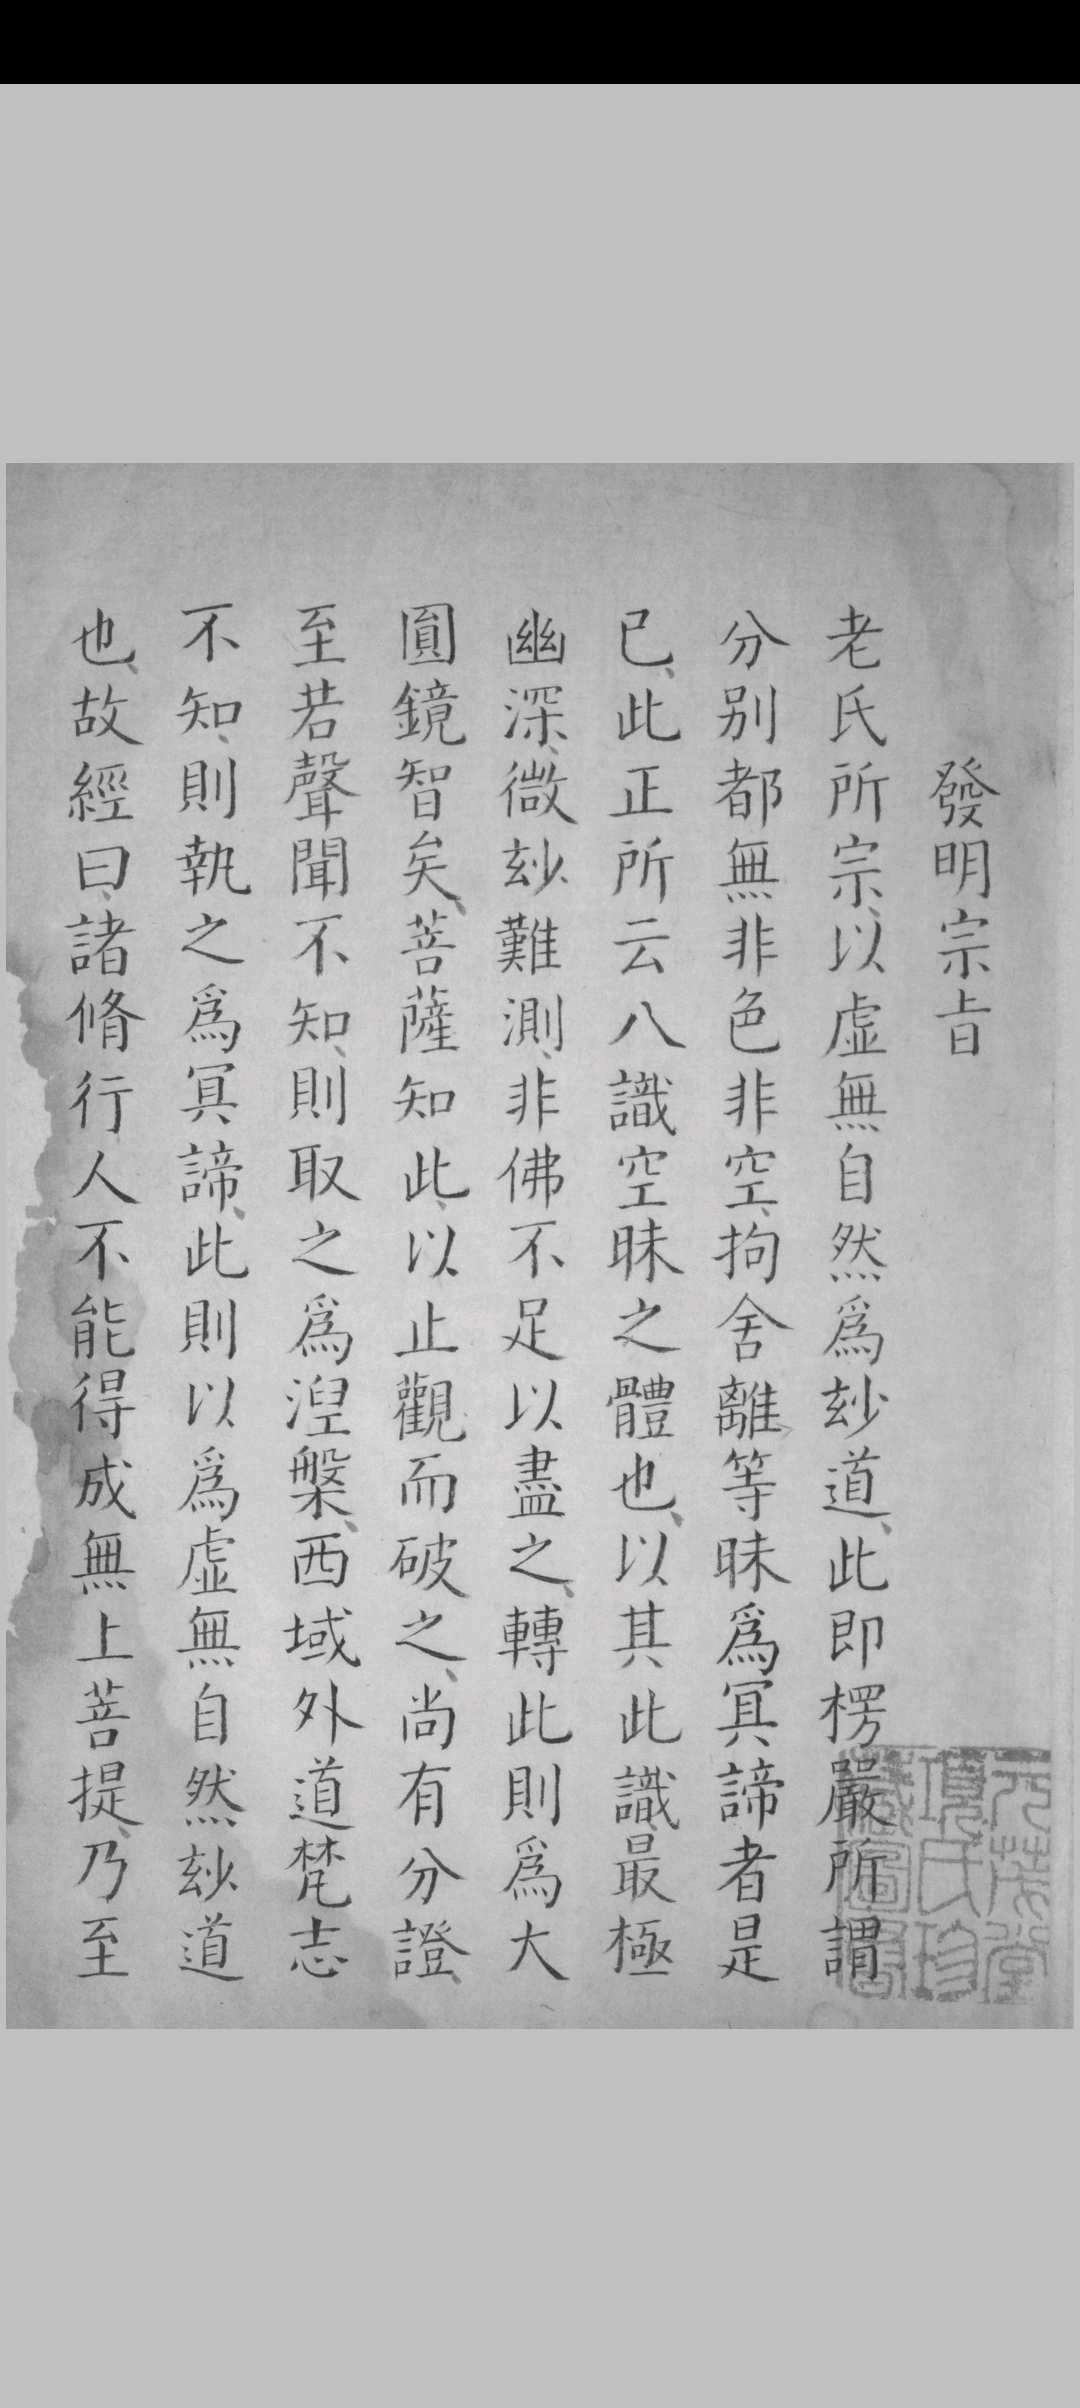 發明宗㫖
老氏所宗、以虛無自然爲玅道、此即楞嚴所謂
分别都無非色非空、拘舍離等昧爲冥諦者是
已、此正所云八識空昧之體也、以其此識最極
幽深、微玅難測、非佛不足以盡之、轉此則爲大
圓鏡智矣、菩薩知此、以止觀而破之、尚有分證、
至若聲聞不知、則取之爲涅槃、西域外道梵志
不知、則執之爲冥諦、此則以爲虛無自然玅道
也、故經曰、諸脩行人不能得成無上菩提、乃至
項氏珍